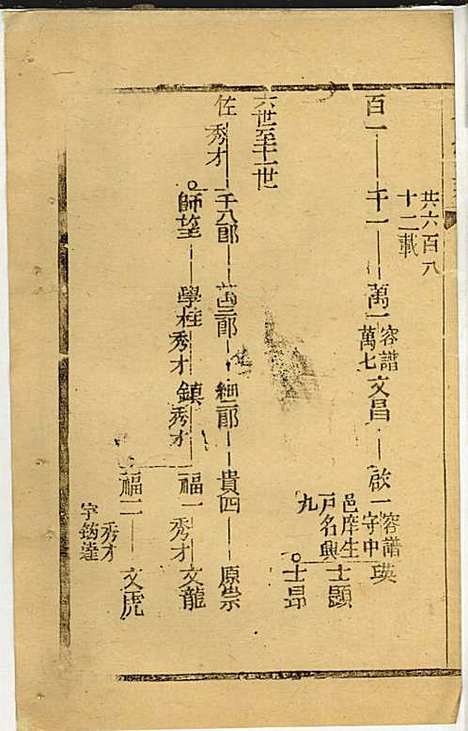 共六百八
十二載
百一 千一 萬一 容譜萬七 文昌 啟一 容譜字中瑛
邑庠生 士顯
戶名興九
士昂
六世至十一世
佐秀才 千八郎 萬三郎 細二郎 貴四 原崇
師望 學柱秀才 鎮秀才 福一秀才 文龍
福二 文虎
秀才
字鈞達